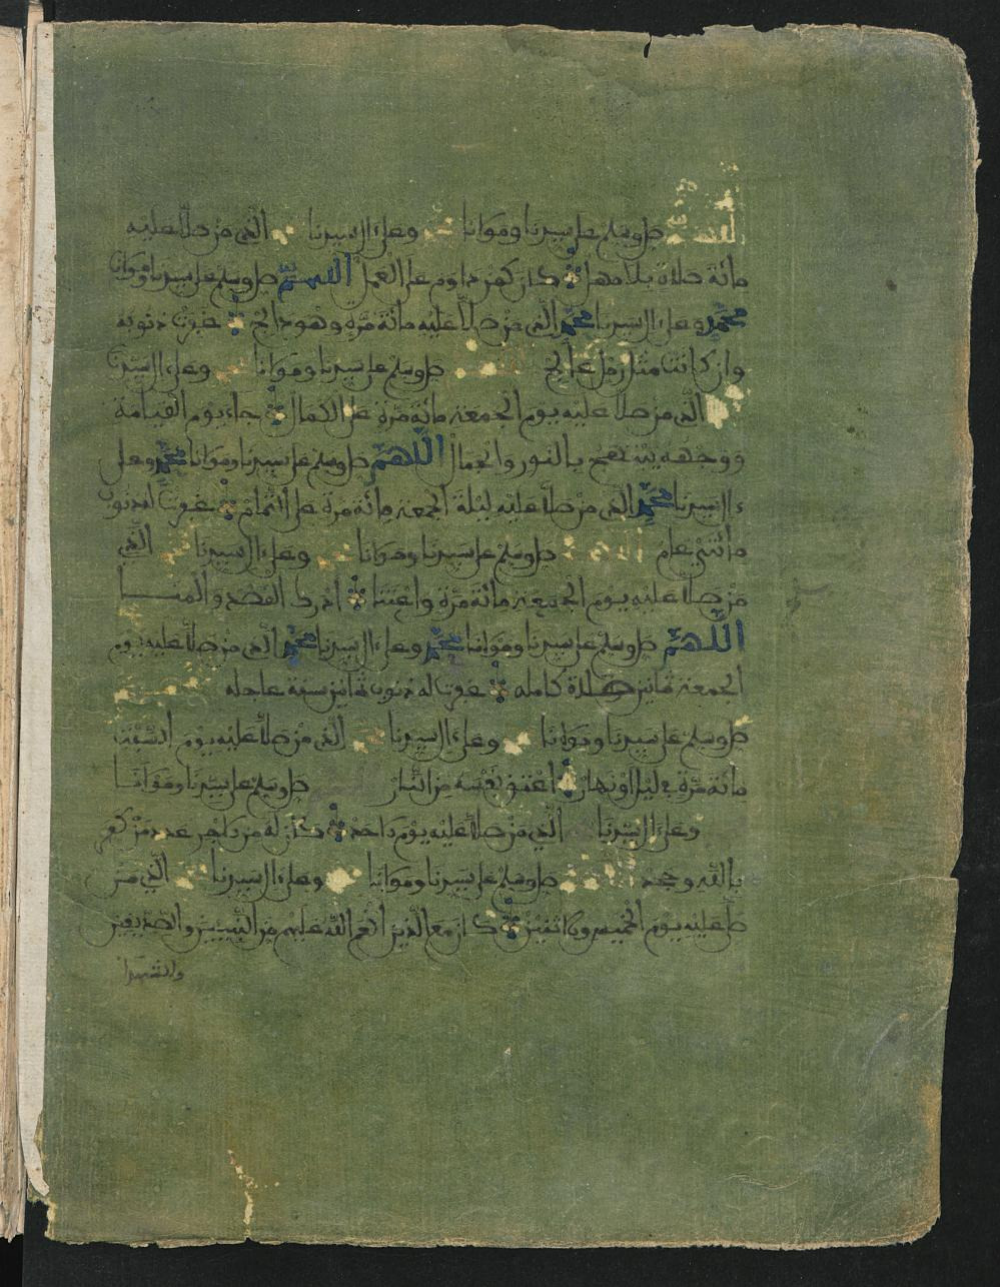 اللهم صل وسلم على سيدنا ومولانا وعلى ءال سيدنا الذي من صلى عليه
مائة صلاة بلا مهل كان كمن داوم على العمل اللهم صل وسلم على سيدنا ومولانا
محمد وعلى ءال سيدنا محمد الذي من صلى عليه مائة مرة وهو غفرت ذنوبه
وان كانت مثل رمل عالج صل وسلم على سيدنا ومولانا وعلى ءال سيدنا
الذي من صلى عليه يوم الجمعة مائة مرة على الكمال جاء يوم القيامة
ووجهه بالنور والجمال اللهم صل وسلم على سيدنا ومولانا محمد وعلى
ءال سيدنا محمد الذي من صلى عليه ليلة الجمعة مائة مرة على التمام غفرت له ذنوب
مائتي عام صل وسلم على سيدنا ومولانا وعلى ءال سيدنا الذي
من صلى عليه يوم الجمعة مائة مرة واعتنا ادرك القصد والمنا
اللهم صل وسلم على سيدنا ومولانا محمد وعلى ءال سيدنا محمد الذي من صلى عليه يوم
الجمعة ثمانين صلاة كاملة غفرت له ذنوب ثمانين سنة عاجله
صل وسلم على سيدنا ومولانا وعلى ءال سيدنا الذي من صلى عليه يوم
مائة مرة في ليل او نهار اعتق نفسه من النار صل وسلم على سيدنا ومولانا
وعلى ءال سيدنا الذي من صلى عليه يوم كان له من الاجر عدد من كفر
بالله وجحد صل وسلم على سيدنا ومولانا وعلى ءال سيدنا الذي من
صلى عليه يوم الخميس كان مع الذين انعم الله عليهم من النبيئين والصديقين
والشهدا